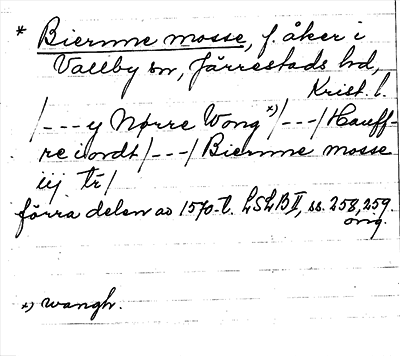 * Biernne mosse, f. åker i
Vallby sn, Järrestads hd,
Krist. l.
/---y Nørre Wong *)/---/Hauff-
re i ordt/---/Biernne mosse
iij tr/
förra delen av 1570-t. LSLB II, ss. 258, 259.
orig.
*) wangh.